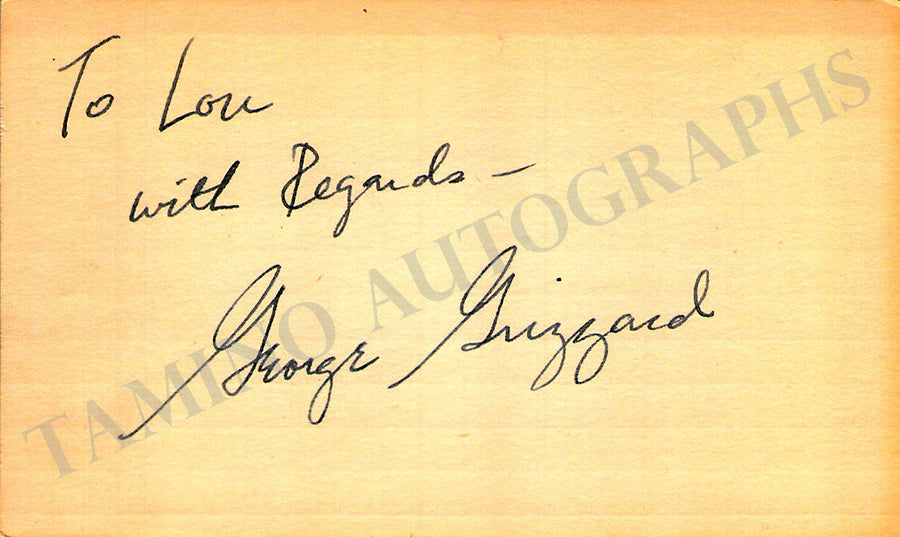 To Lou
with Regards —
George Grizzard
TAMINO AUTOGRAPHS